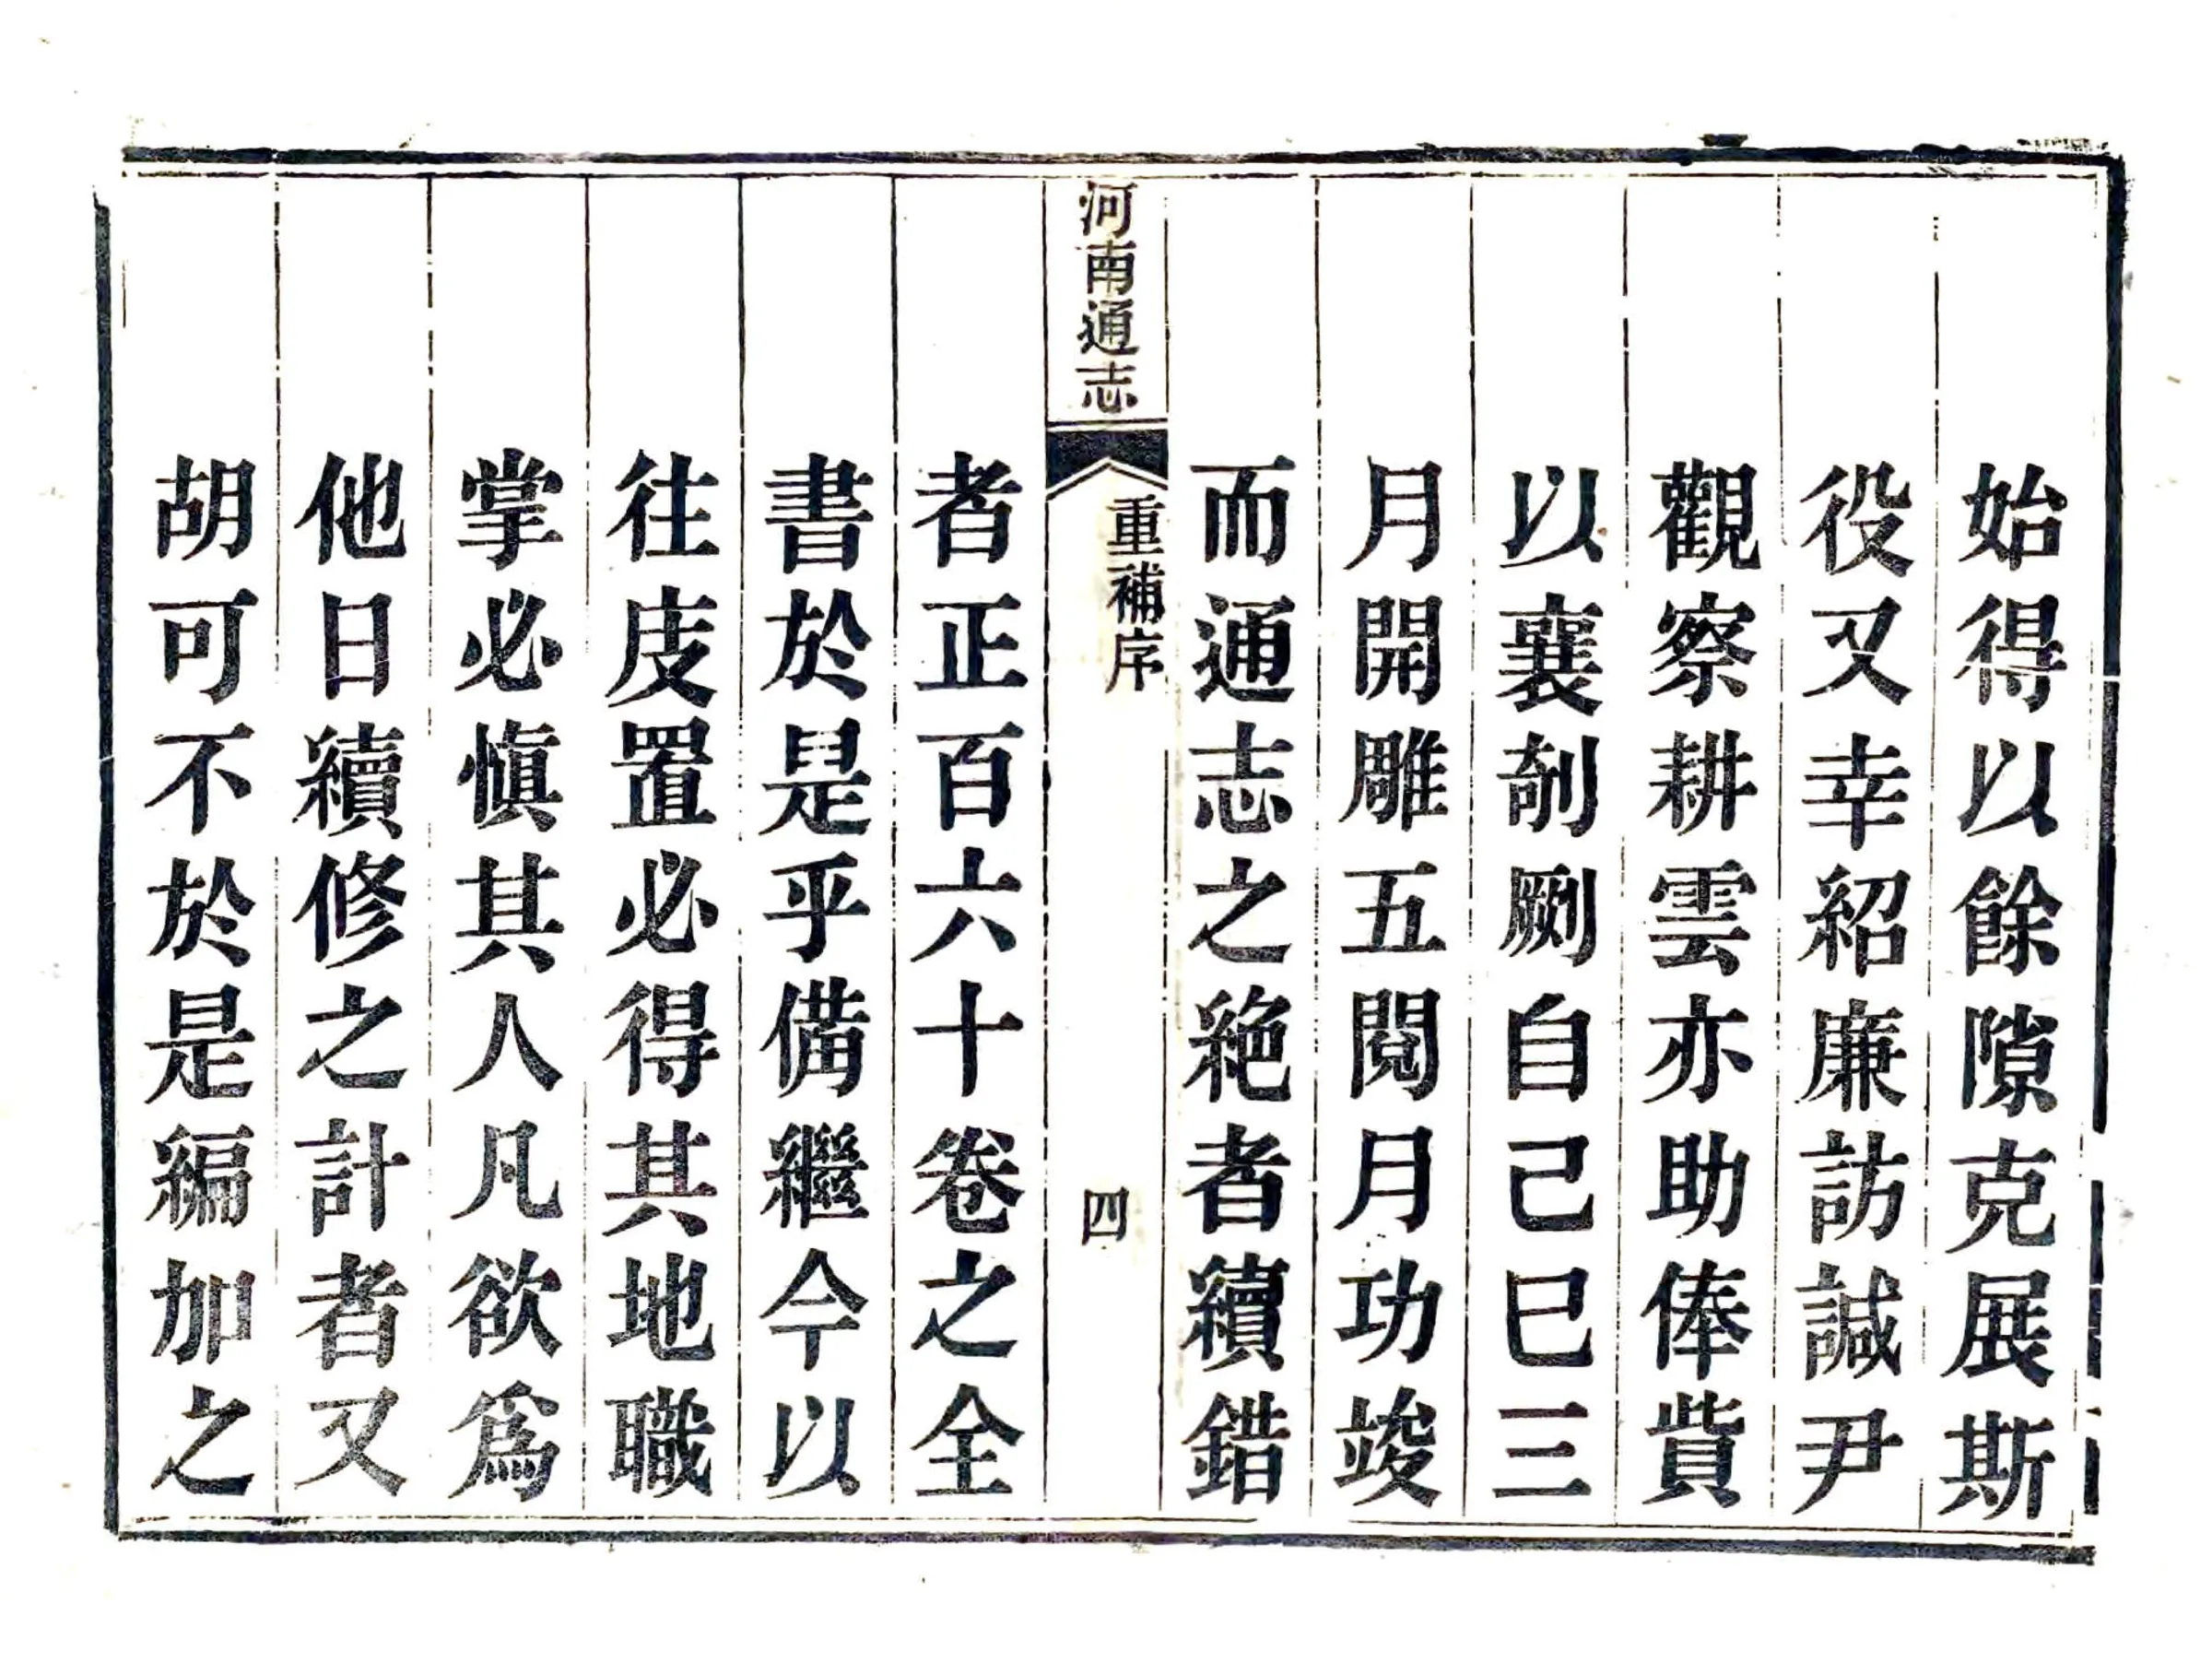 始得以餘隙克展斯
役又幸紹廉訪諴尹
觀察耕雲亦助俸貲
以襄剞劂自己巳三
月開雕五閱月功竣
而通志之絶者續錯
河南通志
重補序
四
者正百六十卷之全
書於是乎備繼今以
往庋置必得其地職
掌必慎其人凡欲爲
他日續修之計者又
胡可不於是編加之